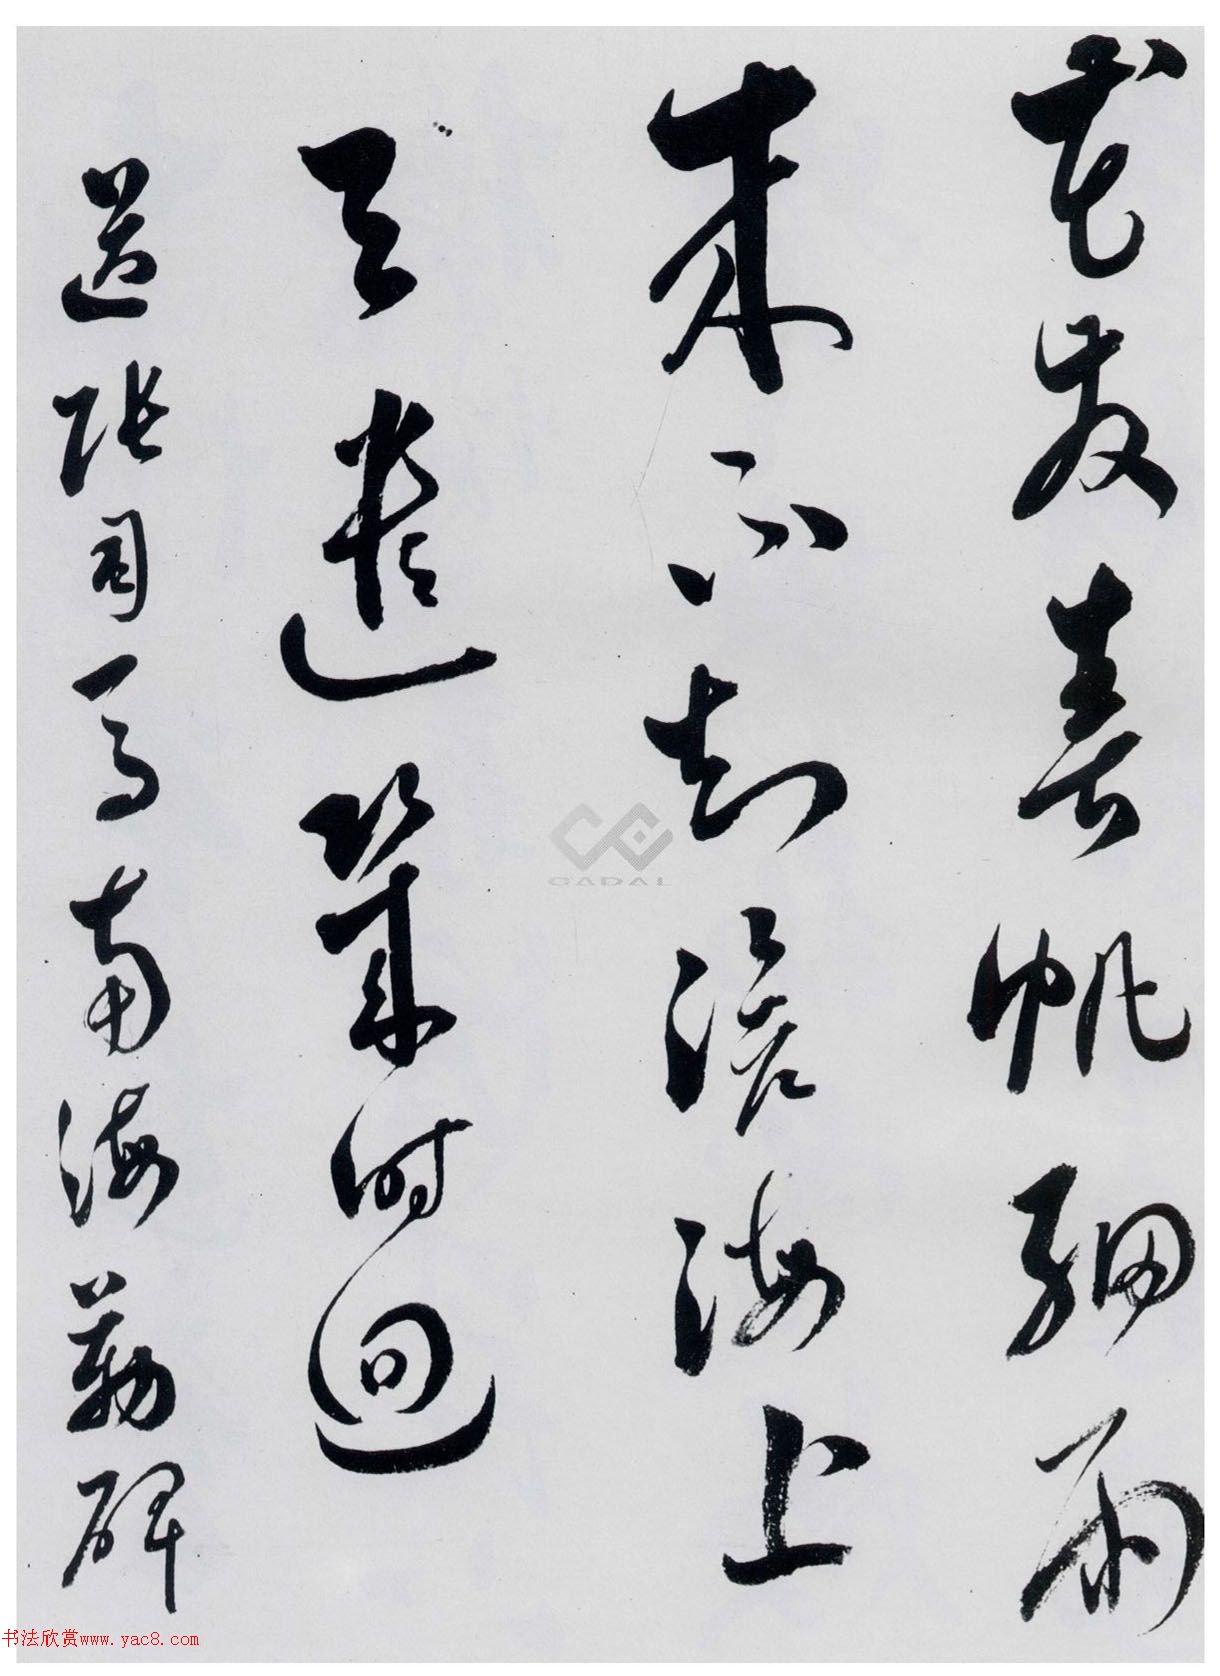 花发春帆细雨
来不知沧海上
天遣几时回
送张司马南海勒碑
CADAL
书法欣赏www.yac8.com